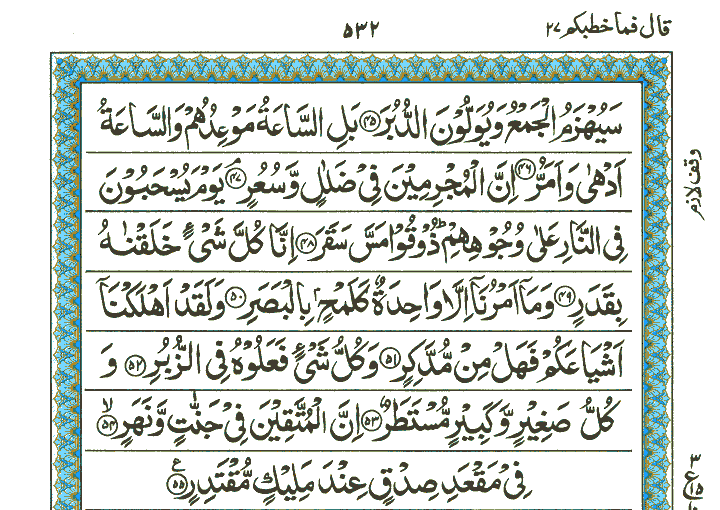 قال فما خطبكم ۲۷
۵۳۲
سَيُهْزَمُ الْجَمْعُ وَيُوَلُّوْنَ الدُّبُرَ ۴۵ بَلِ السَّاعَةُ مَوْعِدُهُمْ وَالسَّاعَةُ
اَدْهٰى وَاَمَرُّ ۴۶ اِنَّ الْمُجْرِمِيْنَ فِيْ ضَلٰلٍ وَّسُعُرٍ ۘ ۴۷ يَوْمَ يُسْحَبُوْنَ
وقف لازم
فِي النَّارِ عَلٰى وُجُوْهِهِمْ ؕ ذُوْقُوْا مَسَّ سَقَرَ ۴۸ اِنَّا كُلَّ شَيْءٍ خَلَقْنٰهُ
بِقَدَرٍ ۴۹ وَمَاۤ اَمْرُنَاۤ اِلَّا وَاحِدَةٌ كَلَمْحٍۭ بِالْبَصَرِ ۵۰ وَلَقَدْ اَهْلَكْنَاۤ
اَشْيَاعَكُمْ فَهَلْ مِنْ مُّدَّكِرٍ ۵۱ وَكُلُّ شَيْءٍ فَعَلُوْهُ فِي الزُّبُرِ ۵۲ وَ
كُلُّ صَغِيْرٍ وَّكَبِيْرٍ مُّسْتَطَرٌ ۵۳ اِنَّ الْمُتَّقِيْنَ فِيْ جَنّٰتٍ وَّنَهَرٍ ۙ ۵۴
فِيْ مَقْعَدِ صِدْقٍ عِنْدَ مَلِيْكٍ مُّقْتَدِرٍ ۵۵ ع
۳
ع
۱۵